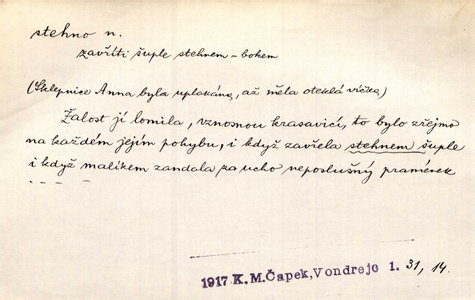 stehno n.
zavříti šuple stehnem = bokem
(Sklepnice Anna byla uplakána, až měla oteklá víčka)
Žalost jí lomila, vznosnou krasavicí, to bylo zřejmo
na každém jejím pohybu, i když zavřela stehnem šuple
i když malíkem zandala za ucho neposlušný pramének
– – –
1917 K. M. Čapek, Vondrejc 1. 31, 14.